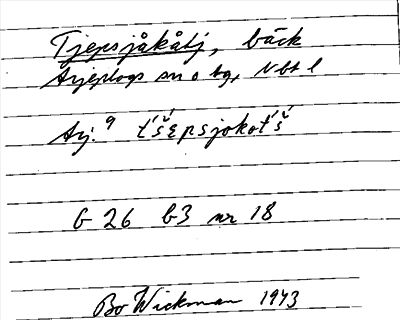 Tjepsjåkåtj, bäck
Arjeplogs sn o tg, Nbt l
Arj. 9 t́šεpsjokot́š
G 26 b3 nr 18
Bo Wickman 1943